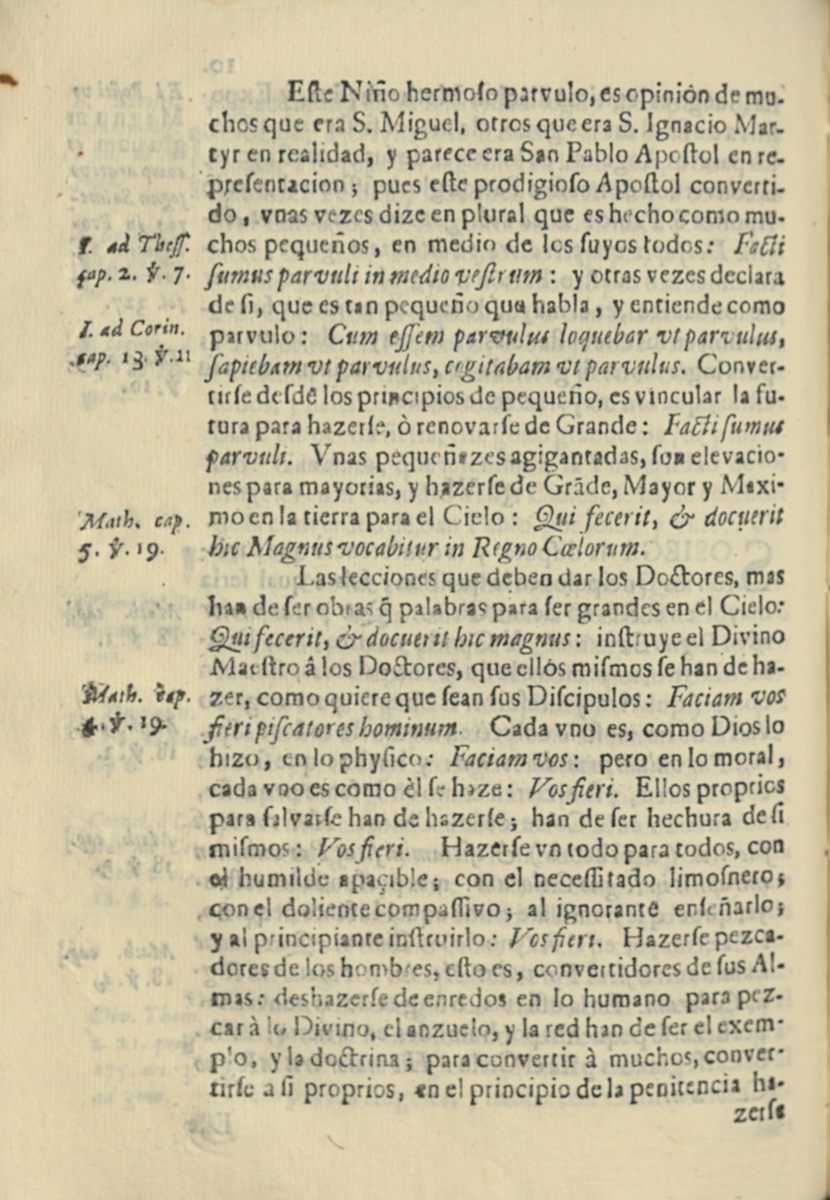 Este Niño hermoso parvulo, es opinión de mu-
chos que era S. Miguel, otros que era S. Ignacio Mar-
tyr en realidad, y parece era San Pablo Apostol en re-
presentacion; pues este prodigioso Apostol converti-
do, vnas vezes dize en plural que es hecho como mu-
I. ad Thess.
cap. 2. ℣. 7.
chos pequeños, en medio de los suyos todos: Facti
sumus parvuli in medio vestrum: y otras vezes declara
de si, que es tan pequeño que habla, y entiende como
I. ad Corin.
cap. 13. ℣. 11
parvulo: Cum essem parvulus loquebar vt parvulus,
sapiebam vt parvulus, cogitabam vt parvulus. Conver-
tirse desde los principios de pequeño, es vincular la fu-
tura para hazerse, ò renovarse de Grande: Facti sumus
parvuli. Vnas pequeñezes agigantadas, son elevacio-
nes para mayorias, y hazerse de Grãde, Mayor y Maxi-
Math. cap.
5. ℣. 19.
mo en la tierra para el Cielo: Qui fecerit, & docuerit
hic Magnus vocabitur in Regno Cœlorum.
Las lecciones que deben dar los Doctores, mas
han de ser obras q̃ palabras para ser grandes en el Cielo:
Qui fecerit, & docuerit hic magnus: instruye el Divino
Maestro â los Doctores, que ellos mismos se han de ha-
Math. cap.
4. ℣. 19.
zer, como quiere que sean sus Discipulos: Faciam vos
fieri piscatores hominum. Cada vno es, como Dios lo
hizo, en lo physico: Faciam vos: pero en lo moral,
cada vno es como èl se haze: Vos fieri. Ellos proprios
para salvarse han de hazerse; han de ser hechura de si
mismos: Vos fieri. Hazerse vn todo para todos, con
el humilde apaçible; con el necessitado limosnero;
con el doliente compassivo; al ignorante enseñarlo;
y al principiante instruirlo: Vos fieri. Hazerse pezca-
dores de los hombres, esto es, convertidores de sus Al-
mas: deshazerse de enredos en lo humano para pez-
car à lo Divino, el anzuelo, y la red han de ser el exem-
plo, y la doctrina; para convertir à muchos, conver-
tirse a si proprios, en el principio de la penitencia ha-
zerse